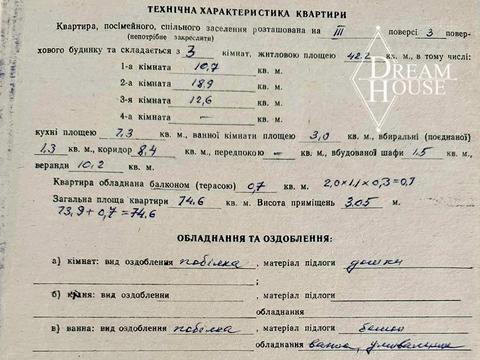 ТЕХНІЧНА ХАРАКТЕРИСТИКА КВАРТИРИ
Квартира, посімейного, спільного заселення розташована на III поверсі 3 повер-
(непотрібне закреслити)
хового будинку та складається з 3 кімнат, житловою площею 42.2 кв. м., в тому числі:
1-а кімната 10,7 кв. м.
2-а кімната 18,9 кв. м.
3-я кімната 12,6 кв. м.
4-а кімната — кв. м.
DREAM
HOUSE
кухні площею 7,3 кв. м., ванної кімнати площею 3,0 кв. м., вбиральні (поєднаної)
1,3 кв. м., коридор 8,4 кв. м., передпокою — кв. м., вбудованої шафи 1.5 кв. м.,
веранди 10,2 кв. м.
Квартира обладнана балконом (терасою) 0,7 кв. м. 2,0×1,1×0,3=0,7
Загальна площа квартири 74.6 кв. м. Висота приміщень 3.05 м.
73,9+0,7=74.6
ОБЛАДНАННЯ ТА ОЗДОБЛЕННЯ:
а) кімнат: вид оздоблення побілка, матеріал підлоги дошки
б) кухня: вид оздоблення
обладнання
в) ванна: вид оздоблення побілка, матеріал підлоги бетон
обладнання ванна, умивальник